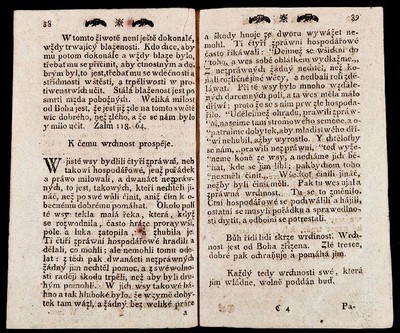 38
W tomto žiwotě není ještě dokonalé,
wždy trwajcý blaženosti. Kdo chce, aby
mu potom dokonale a wždy blaze bylo,
třebať mu se přičiniti, aby ctnostným a do-
brým byl, to jest, třebať mu se wděčnosti a
střídmosti wátěti, a trpěliwosti w pro-
tiwenstwích učit. Stálá blaženost jest po
smrti mzda pobožných. Weliká milost
od Boha jest, že jest již zde na tomto swětě
wíc dobrého, než zlého, a že se nám bylo
y milo učit. Žalm 118. 64.
K čemu wrchnost prospěje.
W jisté wsy bydlili čtyři zpráwní, neb
takowí hospodářowé, jenž pořádek
a práwo milowali, a dwanácti nezpráw-
ných, to jest, takowých, kteří nechtěli ji-
náč, než po swé wůli činit, aniž čím k o-
becnému dobrému pomáhat. Okolo polí
té wsy tekla malá řeka, která, když
se rozwodnila, často hráze prorwawši,
pole a luka zatopila a zhubila jí.
Ti čtiři zpráwní hospodářowé hradili a
dělali, co mohli; ale nemohli tomu ode-
lat: z těch pak dwanácti nezpráwných
žádný jim nechtěl pomoc, a z swéwolno-
sti raději škodu trpěli, než aby byli dru-
hým pomohli. W jich wsy takowé bá-
hno a tak hluboké bylo, že w zymě doby-
tek tam wázl, a žádný bez weliké práce
39
a škody hnoje ze dworu wywážet ne-
mohl. Ti čtyři zpráwní hospodářowé
často říkáwali: "Dejmež se wšickni do
"toho, a wes sobě oblátkem wydlažme,,
z nezpráwných žádný nedbal, než ko-
nali rozličné jiné wěcy, a nedbali roli zdě-
láwat. Při té wsy bylo mnoho wydále-
ných daremných polí, a ta wes měla málo
dříwí; proto že se s ním prw zle hospoda-
řilo. "Udělejmež ohradu, prawili zpráw-
"ní, nasejme tam stromowého semene, a o-
"patrujme dobytek, aby mladistwého dří-
"wí nehubil, aby wyrostlo. Y chtělotby
se nám,,, prawili nezpráwní, "teď wyže-
"neme koně ze wsy, a necháme jich bě-
"hat, kde se jim líbí; pakbychom toho
"nesměli činit,,. Wšeckož činili jináč,
nežby byli činit měli. Pak tu wes ujala
zpráwná wrchnost. Ta se to změnilo
Čtni hospodářowé se podwolili a hájili,
ostatní se musyli pořádku a sprawedlno-
sti dytit, a odbojní se potrestali.
Bůh řídí lidi skrze wrchnost. Wrch-
nost jest od Boha zřízena. Zlé tresce,
dobré pak ochraňuje a pomáhá jim.
Každý tedy wrchnosti swé, která
jím wládne, wolně poddán buď,
C 4
Pa-